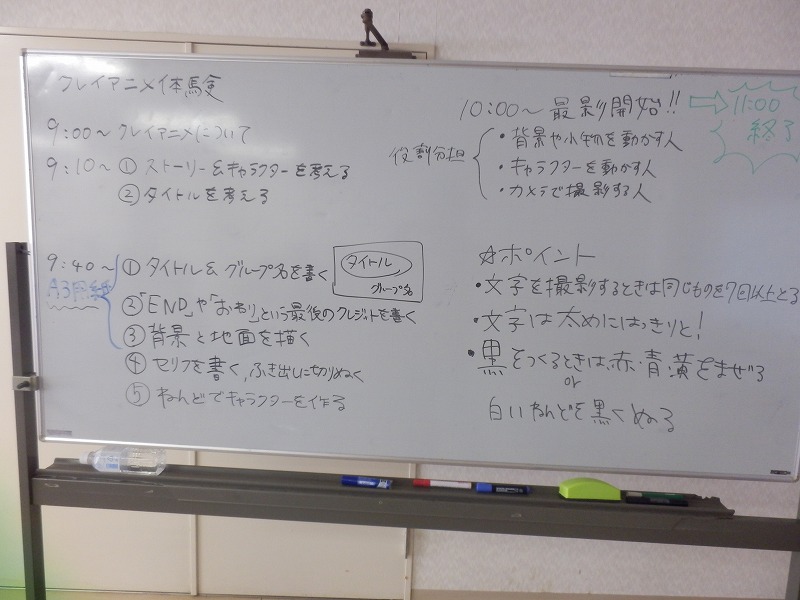 クレイアニメ体験
9:00~ クレイアニメについて
9:10~ ① ストーリー&キャラクターを考える
② タイトルを考える
9:40~ ① タイトル& グループ名を書く
A3用紙
タイトル
グループ名
②「END」や「おわり」という最後のクレジットを書く
③ 背景と地面を描く
④ セリフを書く,ふき出しに切りぬく
⑤ ねんどでキャラクターを作る
10:00~ 最影開始!!
⇒ 11:00
終了
役割分担
・背景や小物を動かす人
・キャラクターを動かす人
・カメラで撮影する人
☆ポイント
・文字を撮影するときは同じものを7回以上とる
・文字は太めにはっきりと!
・黒をつくるときは、赤・青・黄をまぜる
or
白いねんどを黒くぬる